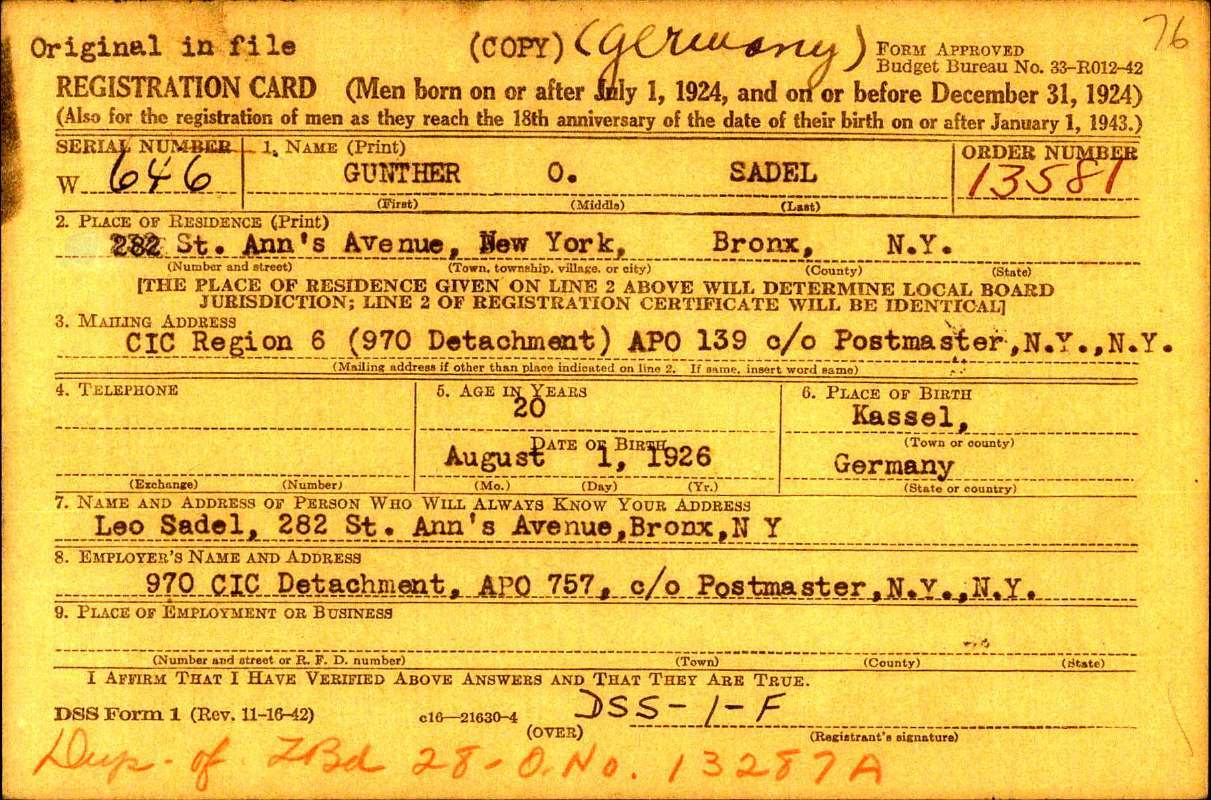 76
Original in file (COPY) (Germany) FORM APPROVED
Budget Bureau No. 33-R012-42
REGISTRATION CARD (Men born on or after July 1, 1924, and on or before December 31, 1924)
(Also for the registration of men as they reach the 18th anniversary of the date of their birth on or after January 1, 1943.)
SERIAL NUMBER 1. NAME (Print) ORDER NUMBER
W 646 GUNTHER O. SADEL 13581
(First) (Middle) (Last)
2. PLACE OF RESIDENCE (Print)
282 St. Ann's Avenue, New York, Bronx, N.Y.
(Number and street) (Town, township, village, or city) (County) (State)
[THE PLACE OF RESIDENCE GIVEN ON LINE 2 ABOVE WILL DETERMINE LOCAL BOARD
JURISDICTION; LINE 2 OF REGISTRATION CERTIFICATE WILL BE IDENTICAL]
3. MAILING ADDRESS
CIC Region 6 (970 Detachment) APO 139 c/o Postmaster,N.Y.,N.Y.
(Mailing address if other than place indicated on line 2. If same, insert word same)
4. TELEPHONE 5. AGE IN YEARS 6. PLACE OF BIRTH
20 Kassel,
DATE OF BIRTH (Town or county)
August 1, 1926 Germany
(Exchange) (Number) (Mo.) (Day) (Yr.) (State or country)
7. NAME AND ADDRESS OF PERSON WHO WILL ALWAYS KNOW YOUR ADDRESS
Leo Sadel, 282 St. Ann's Avenue,Bronx,N Y
8. EMPLOYER'S NAME AND ADDRESS
970 CIC Detachment, APO 757, c/o Postmaster,N.Y.,N.Y.
9. PLACE OF EMPLOYMENT OR BUSINESS
(Number and street or R. F. D. number) (Town) (County) (State)
I AFFIRM THAT I HAVE VERIFIED ABOVE ANSWERS AND THAT THEY ARE TRUE.
DSS Form 1 (Rev. 11-16-42) c16—21630-4 DSS-1-F
(OVER) (Registrant's signature)
Dup. of LBd 28-O.No. 13287A